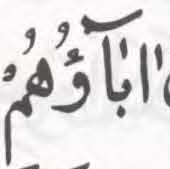 اٰبَآؤُهُمْ